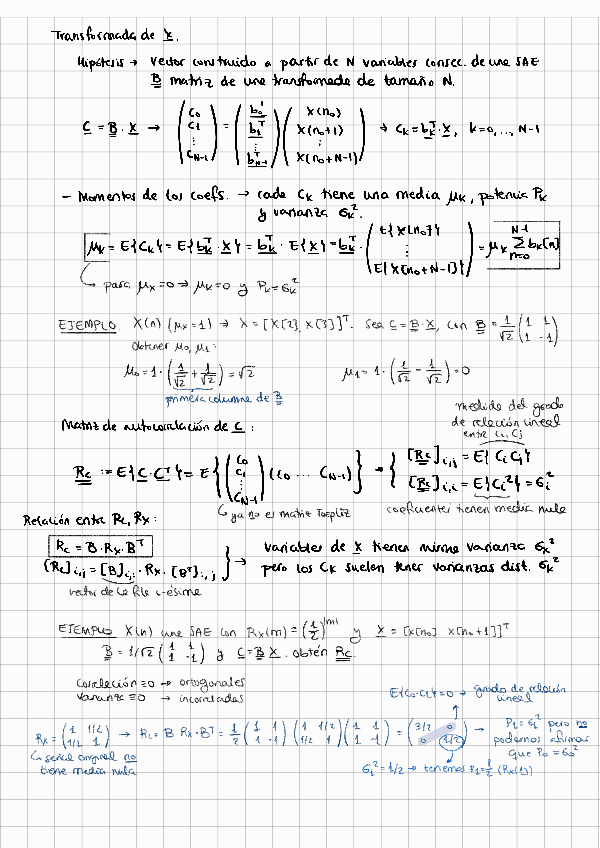 Transformada de X.
Hipótesis → vector construido a partir de N variables consec. de una SAE
B matriz de una transformada de tamaño N.
C = B · X → (C0 C1 ⋮ CN-1) = (b0ᵀ b1ᵀ ⋮ bN-1ᵀ) (X(n0) X(n0+1) ⋮ X(n0+N-1)) → Ck = bkᵀ · X, k=0,..., N-1
- Momentos de los coefs. → cada Ck tiene una media μk, potencia Pk
y varianza σk².
μk = E{Ck} = E{bkᵀ · X} = bkᵀ · E{X} = bkᵀ · (E{X[n0]} ⋮ E{X[n0+N-1]}) = μx Σ bk[n]
para μx=0 → μk=0 y Pk=σk²
EJEMPLO X(n) (μx=1) → X = [X[2], X[3]]ᵀ. Sea C = B·X, con B = 1/√2 (1 1 1 -1)
obtener μ0, μ1:
μ0 = 1 · (1/√2 + 1/√2) = √2 μ1 = 1 · (1/√2 - 1/√2) = 0
primera columna de B
medida del grado
de relación lineal
entre Ci, Cj
Matriz de autocorrelación de C :
Rc := E{C·Cᵀ} = E{(C0 C1 ⋮ CN-1) (C0 ... CN-1)} → { [Rc]i,j = E{Ci Cj}
[Rc]i,i = E{Ci²} = σi²
ya no es matriz Toeplitz
coeficientes tienen media nula
Relación entre Rc, Rx :
Rc = B·Rx·Bᵀ
[Rc]i,j = [B]i,: · Rx · [Bᵀ]:,j
→ variables de X tienen misma varianza σx²
pero los Ck suelen tener varianzas dist. σk²
vector de la fila i-ésima
EJEMPLO X(n) una SAE con Rx(m) = (1/2)^|m| y X = [X[n0] X[n0+1]]ᵀ
B = 1/√2 (1 1 1 -1) y C = B X. obtén Rc.
Correlación=0 → ortogonales
Varianza=0 → incorreladas
E{C0·C1}=0 → grado de relación
lineal
Rx = (1 1/2 1/2 1) → Rc = B Rx·Bᵀ = 1/2 (1 1 1 -1) (1 1/2 1/2 1) (1 1 1 -1) = (3/2 0 0 1/2) → P1=σ1² pero no
podemos afirmar
que P0 = σ0²
señal original no
tiene media nula
σ1² = 1/2 → tenemos P1=1/2 (Rx(1))